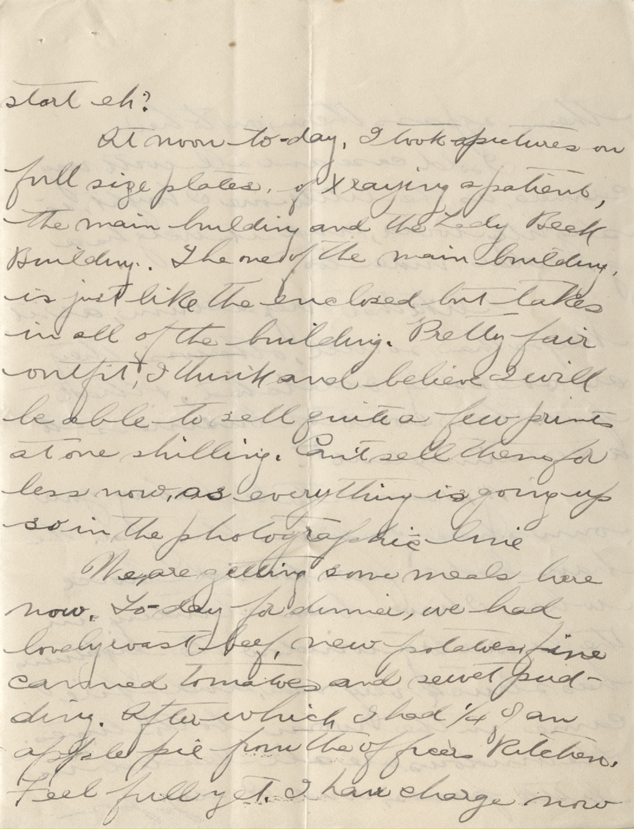 start eh?
At noon to-day, I took pictures on
full size plates, of Xraying a patient,
the main building and the Lady Beck
Building. The one of the main building,
is just like the enclosed but takes
in all of the building. Pretty fair
outfit, I think and believe I will
be able to sell quite a few prints
at one shilling. Can't sell them for
less now, as everything is going up
so in the photographic line
We are getting some meals here
now. To-day for dinner, we had
lovely roast beef, new potatoes, fine
canned tomatoes and suet pud-
ding. After which I had 1/4 of an
apple pie from the officers Kitchen.
Feel full yet. I have charge now